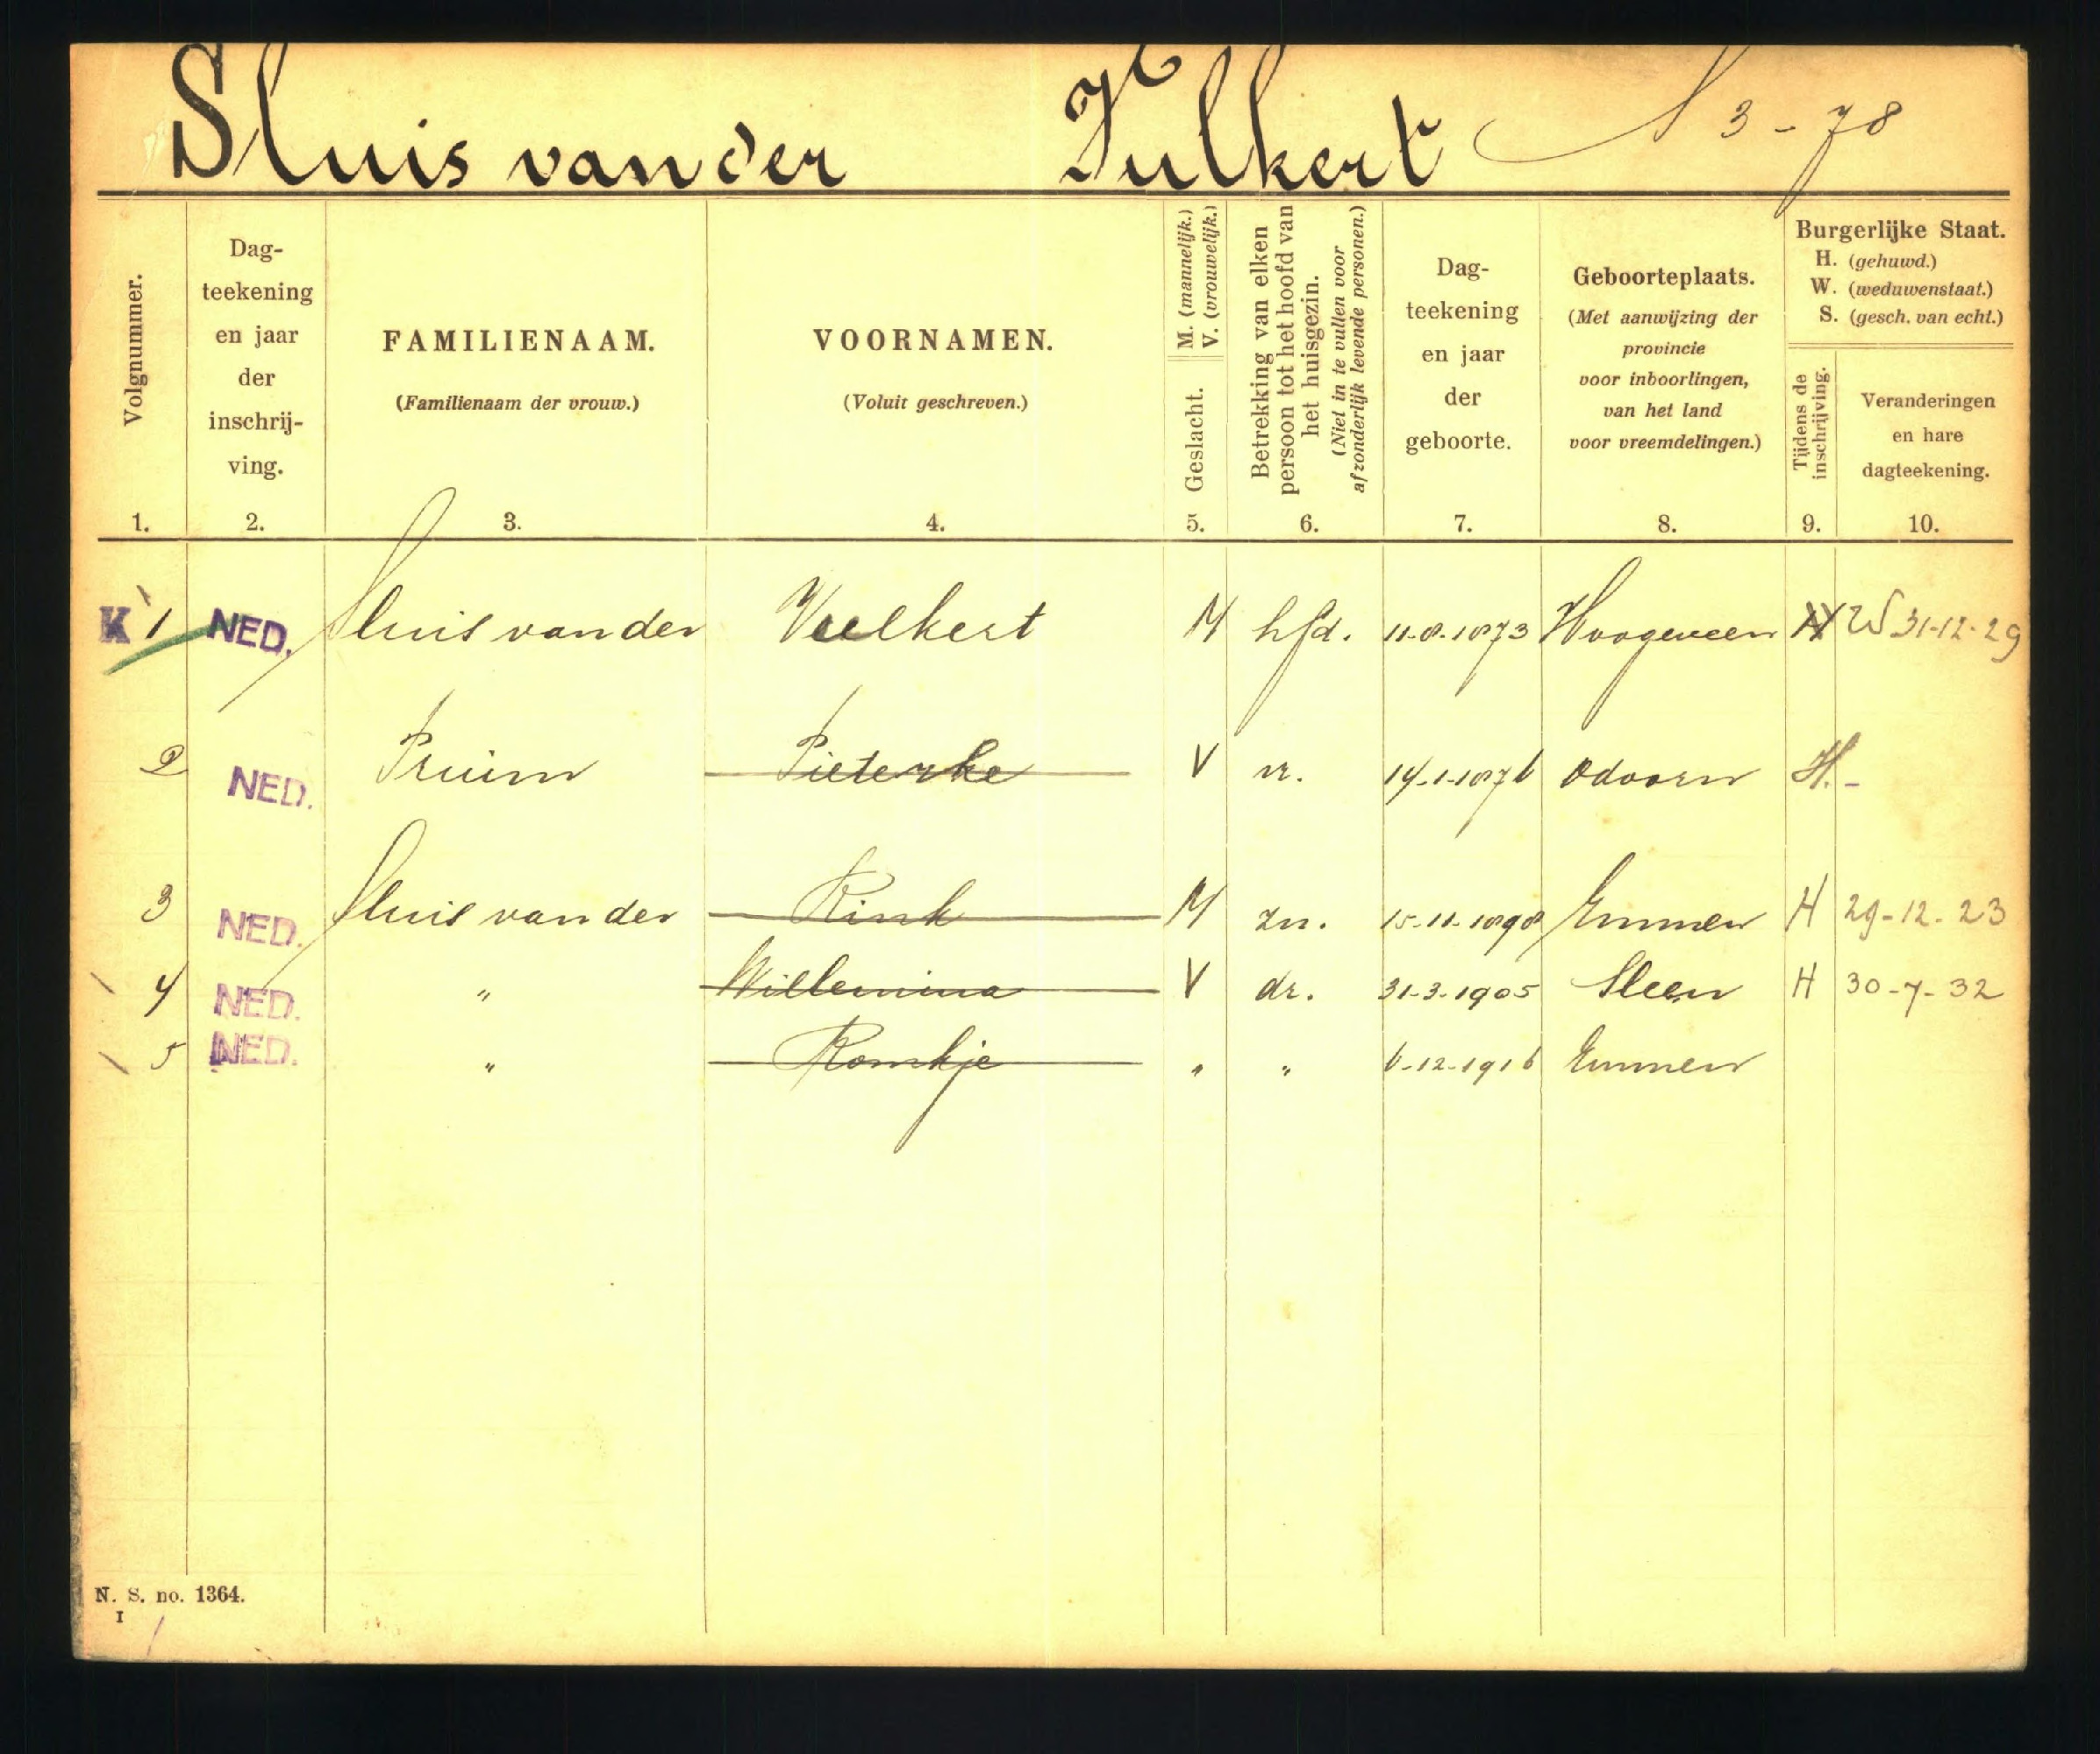 Sluis van der Fulkert S 3 - 78
Volgnummer.
Dag-
teekening
en jaar
der
inschrij-
ving.
FAMILIENAAM.
(Familienaam der vrouw.)
VOORNAMEN.
(Voluit geschreven.)
M. (mannelijk.)
V. (vrouwelijk.)
Geslacht.
Betrekking van elken
persoon tot het hoofd van
het huisgezin.
(Niet in te vullen voor
afzonderlijk levende personen.)
Dag-
teekening
en jaar
der
geboorte.
Geboorteplaats.
(Met aanwijzing der
provincie
voor inboorlingen,
van het land
voor vreemdelingen.)
Burgerlijke Staat.
H. (gehuwd.)
W. (weduwenstaat.)
S. (gesch. van echt.)
Tijdens de
inschrijving.
Veranderingen
en hare
dagteekening.
1. 2. 3. 4. 5. 6. 7. 8. 9. 10.
K 1 NED. Sluis van der M hfd. 11-8-1873 Hoogeveen H W 31-12-29
2 NED. Pruim Pieterke V vr. 14-1-1876 Odoorn H. -
3 NED. Sluis van der Rink M zn. 15-11-1898 Emmen H 29-12-23
4 NED. " Willemina V dr. 31-3-1905 Sleen H 30-7-32
5 NED. " Romkje " " 6-12-1916 Emmen
N. S. no. 1364.
I